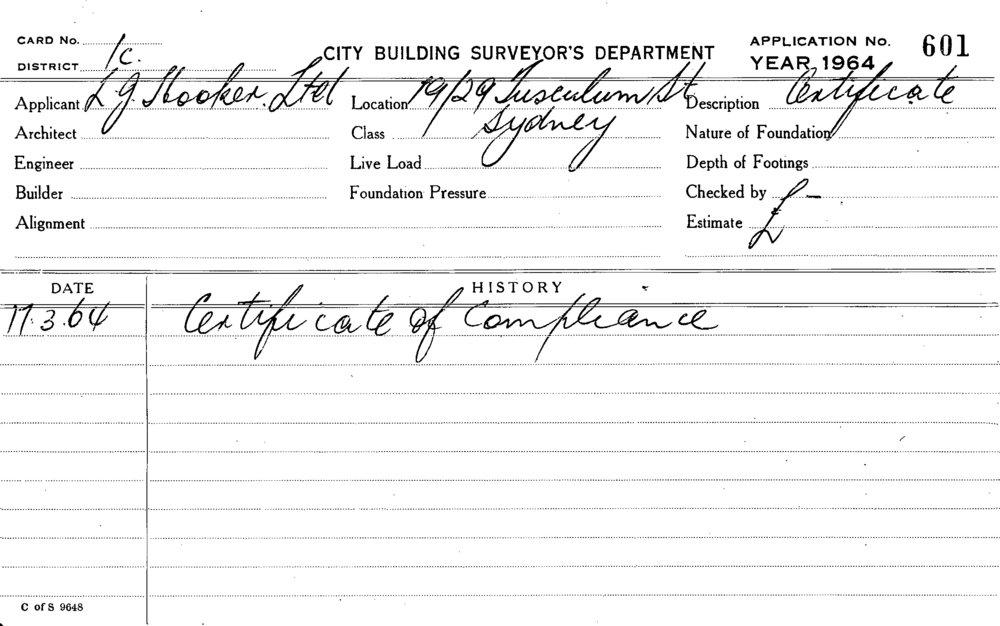 CARD No.
DISTRICT 1c.
CITY BUILDING SURVEYOR'S DEPARTMENT
APPLICATION No. 601
YEAR, 1964
Applicant L.J. Hooker. Ltd
Location 19/29 Tusculum St
Sydney
Description Certificate
Architect
Class
Nature of Foundation
Engineer
Live Load
Depth of Footings
Builder
Foundation Pressure
Checked by
Alignment
Estimate £ -
DATE HISTORY
17.3.64 Certificate of Compliance
C of S 9648